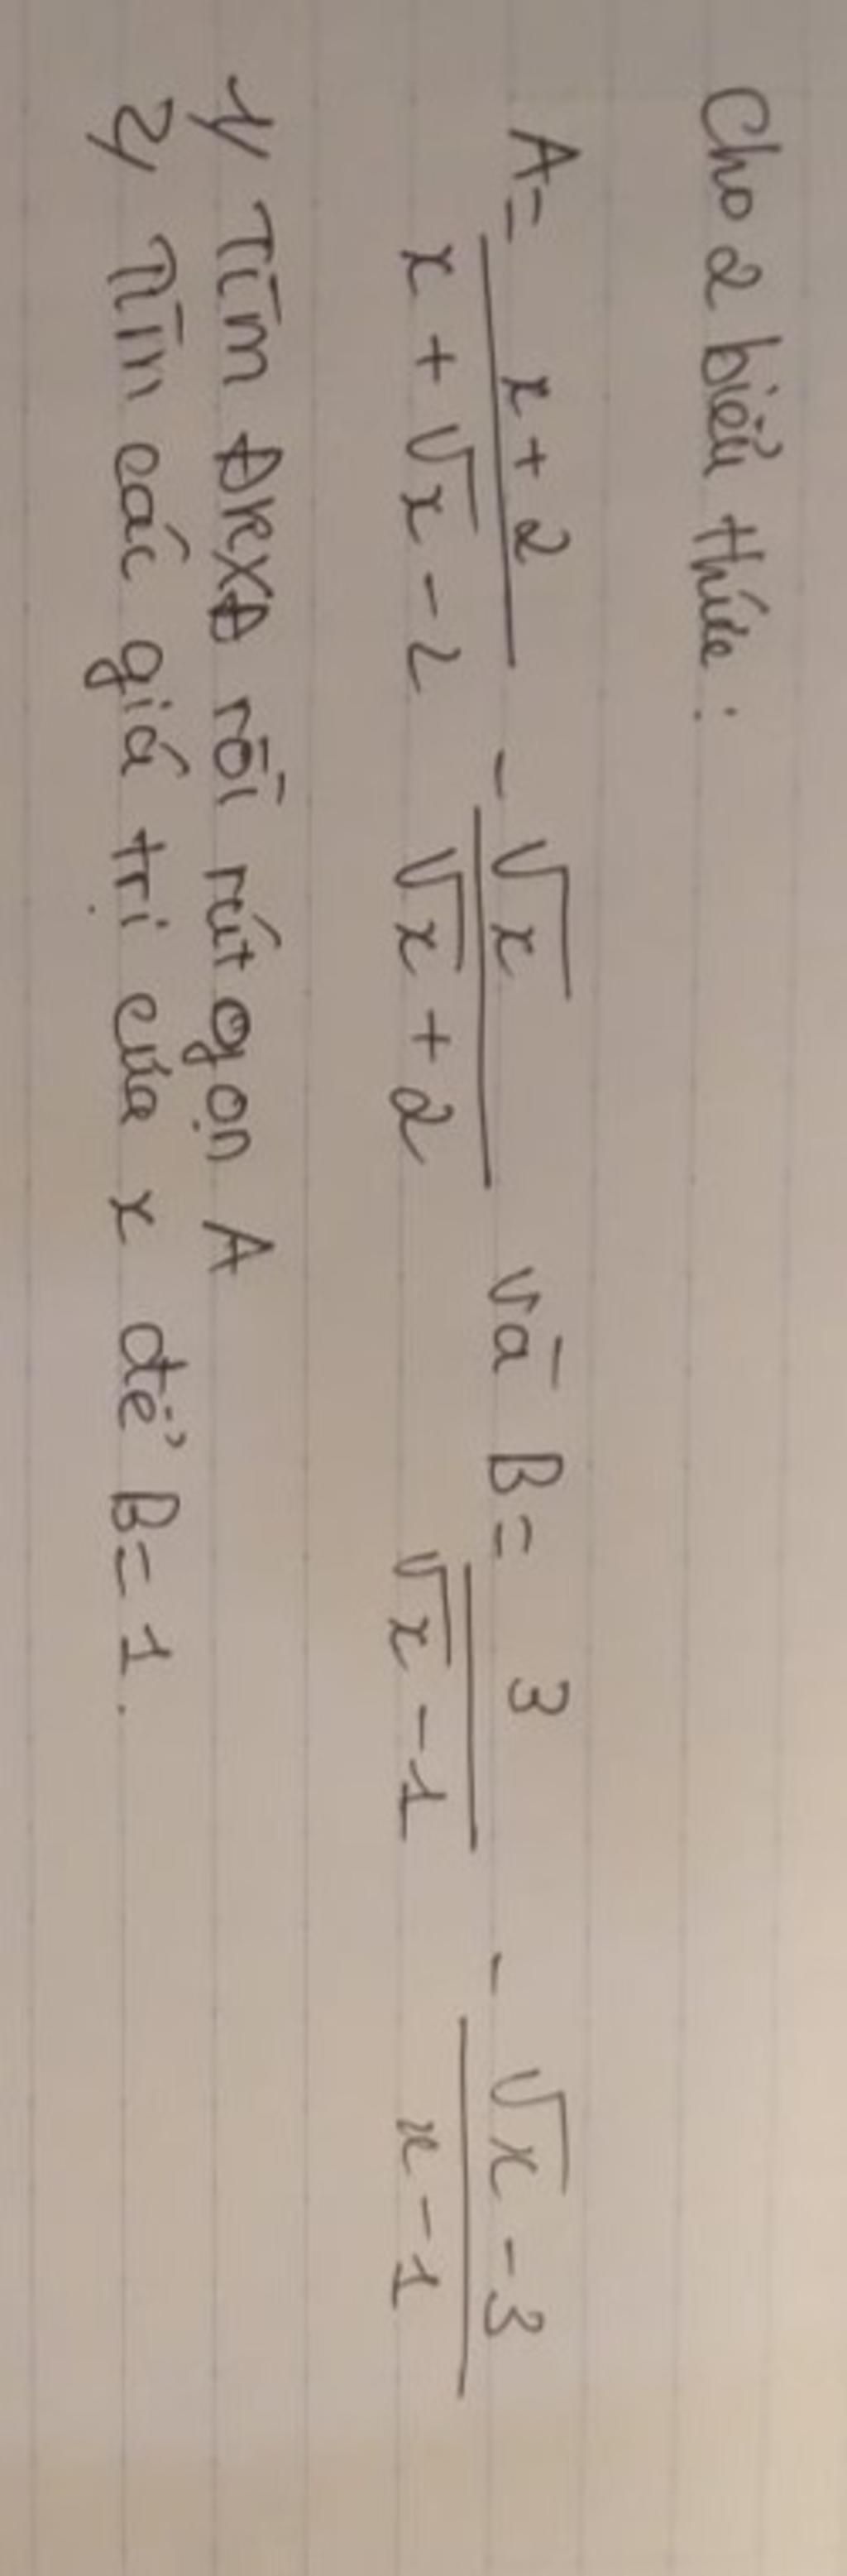 Cho 2 biểu thức:
A = \frac{x + 2}{x + \sqrt{x} - 2} - \frac{\sqrt{x}}{\sqrt{x} + 2} và B = \frac{3}{\sqrt{x} - 1} - \frac{\sqrt{x} - 3}{x - 1}
1/ Tìm ĐKXĐ rồi rút gọn A
2/ Tìm các giá trị của x để B = 1.